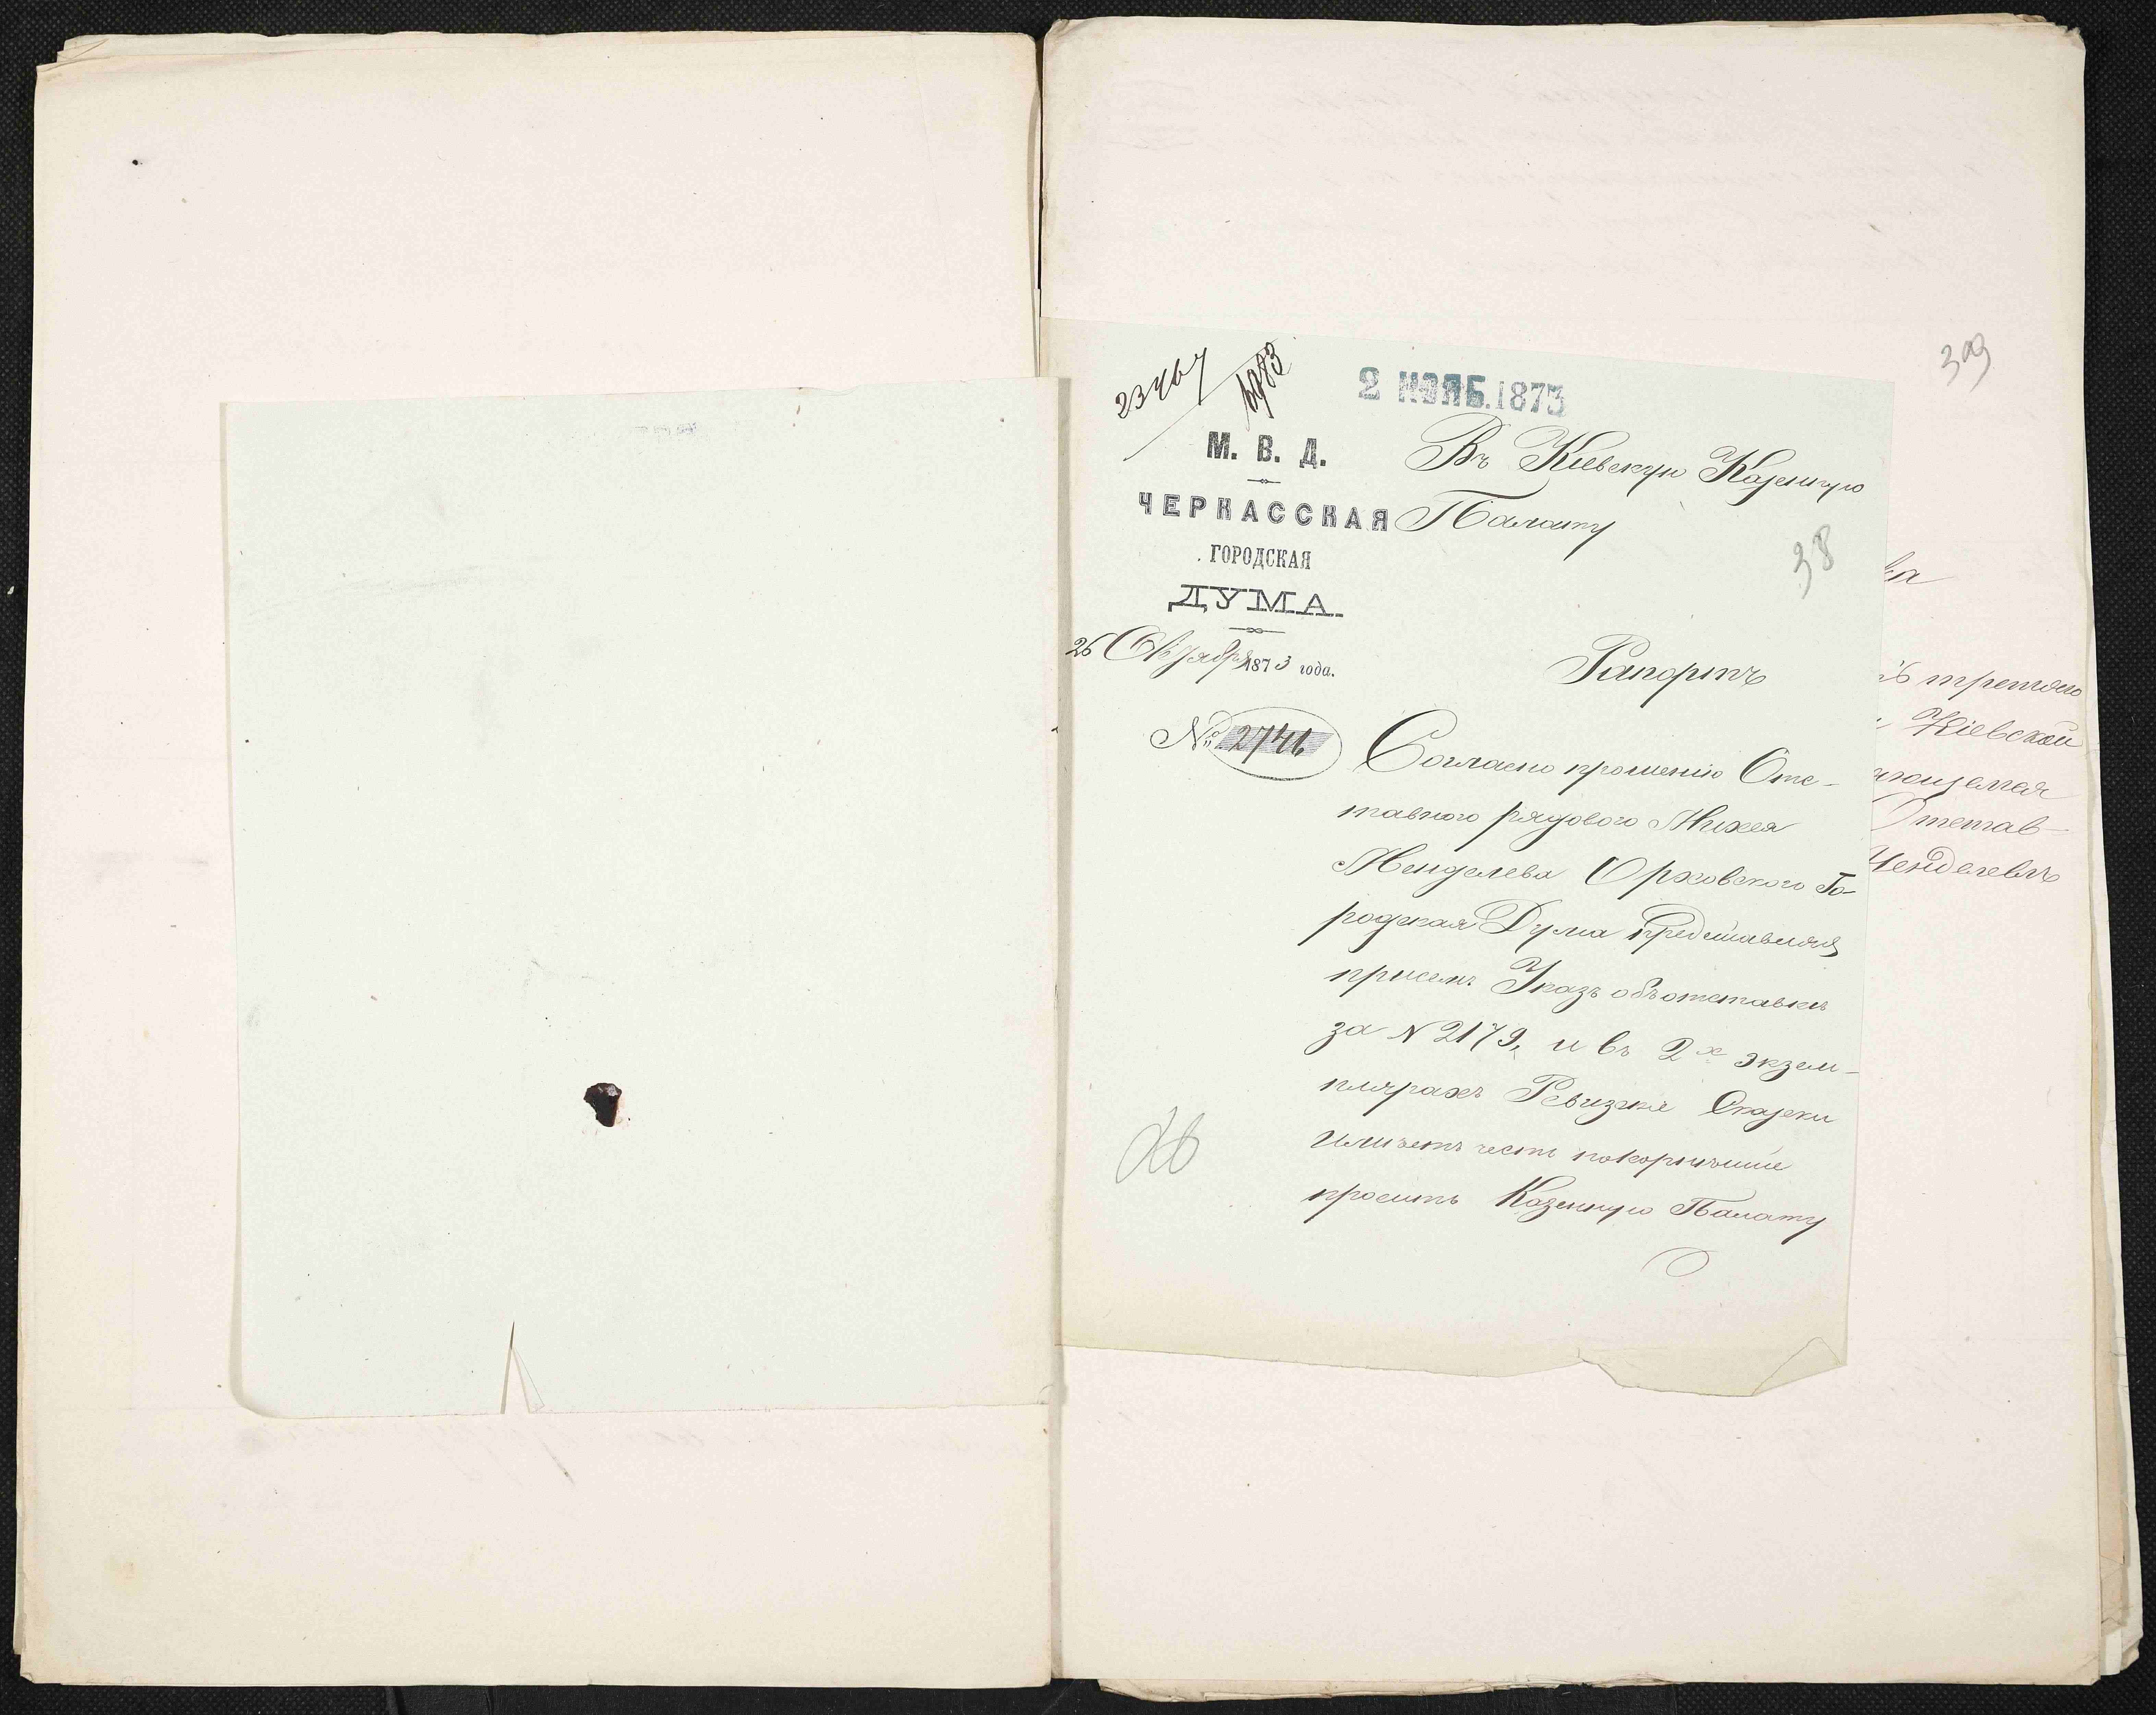 23467
2 НОЯБ.1873
309
М. В. Д.
ЧЕРКАССКАЯ
ГОРОДСКАЯ
ДУМА.
26 Октября 1873 года.
№ 2746
Въ Кіевскую Казенную
Палату
38
Рапортъ
Согласно прошенію Отс-
тавного рядового Михея
Менделева Орховского Го-
родская Дума представляя
присемъ Указъ объ отставкѣ
за N 2179, и въ 2х экзем-
плярахъ Ревизскіе Сказки
имѣетъ честь покорнѣйше
просить Казенную Палату
ва
ъ третяго
Кіевской
ющемся
Отстав-
Менделевъ